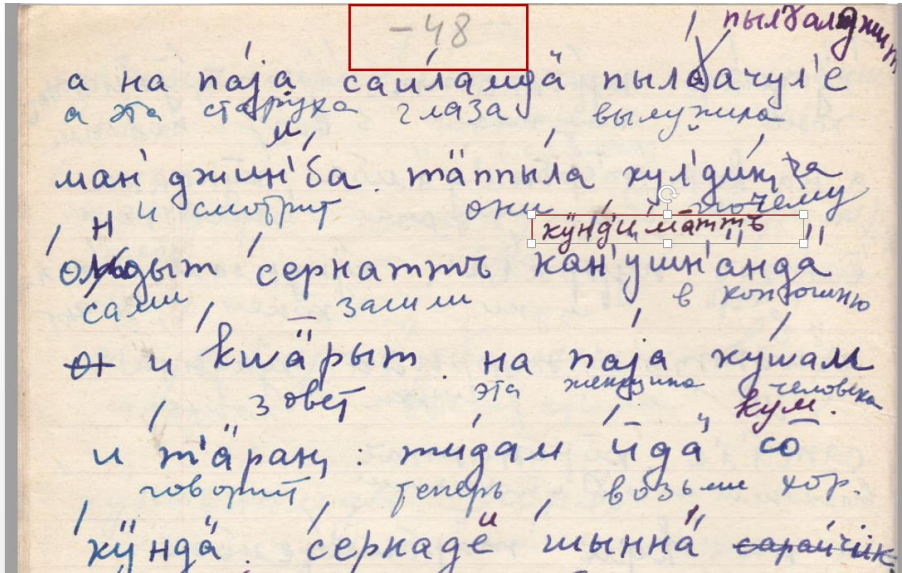 -48
пылӡалджит
а на па́ја са́йламдӓ пылӡачул'е
а эта старуха глаза вылупила
ман'джин'ба. тӓппы́ла кул'ди́к
и смотрит они почему
кӱнди ма̄ттъ
о́ндыт се́рнаттъ кан'у́шн'андӓ
сами зашли в конюшню
и квӓрыт. на па́ја кушам
зовет эта женщина человека
кум.
и т'ӓраӊ: ти́дам ӣдӓ̈ со̄
говорит теперь возьми хор.
кӱ́ндӓ. се́рнаде шы́ннӓ сарайчик